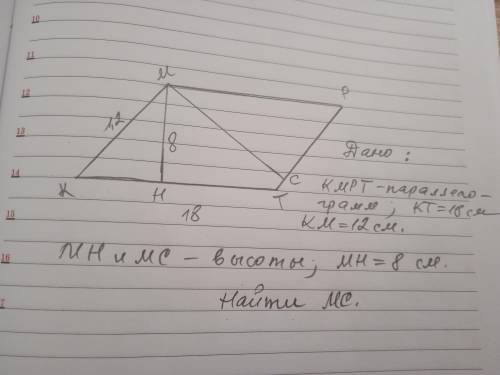 10
11
12
13
14
15
16
M
P
12
8
K
H
C
T
18
Дано :
КМРТ-паралело-
грамм; КТ=18см
КМ=12см.
МН и МС - высоты; МН=8 см.
Найти МС.